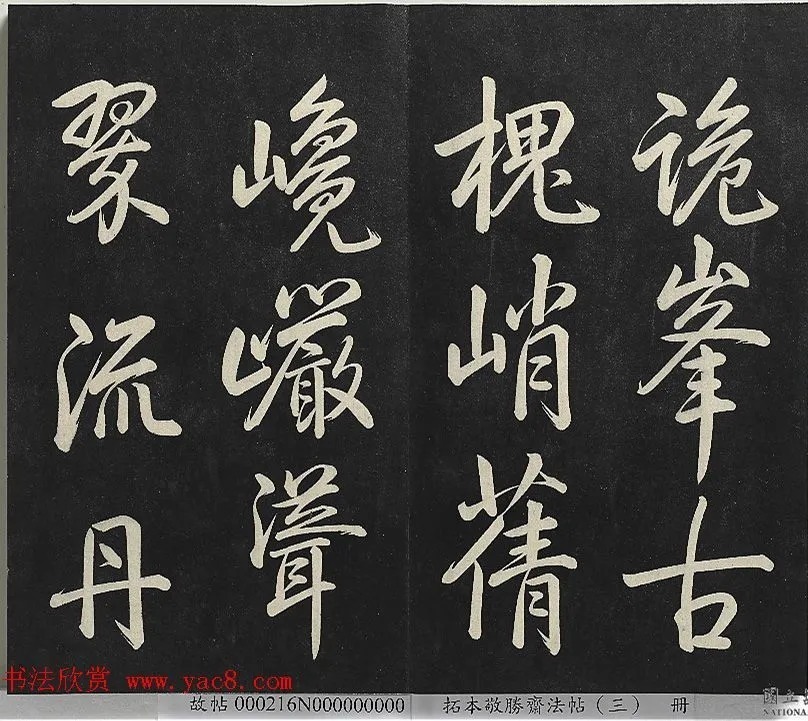 詭峯古
槐峭蒨
巉巖聳
翠流丹
书法欣赏 www.yac8.com
故帖000216N000000000 拓本敬勝齋法帖（三） 册
國立
NATIONA